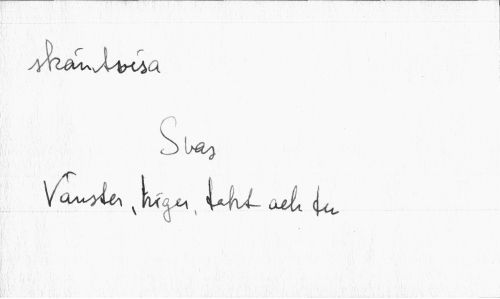 skämtvisa
Svar
Vänster, höger, takt och tu